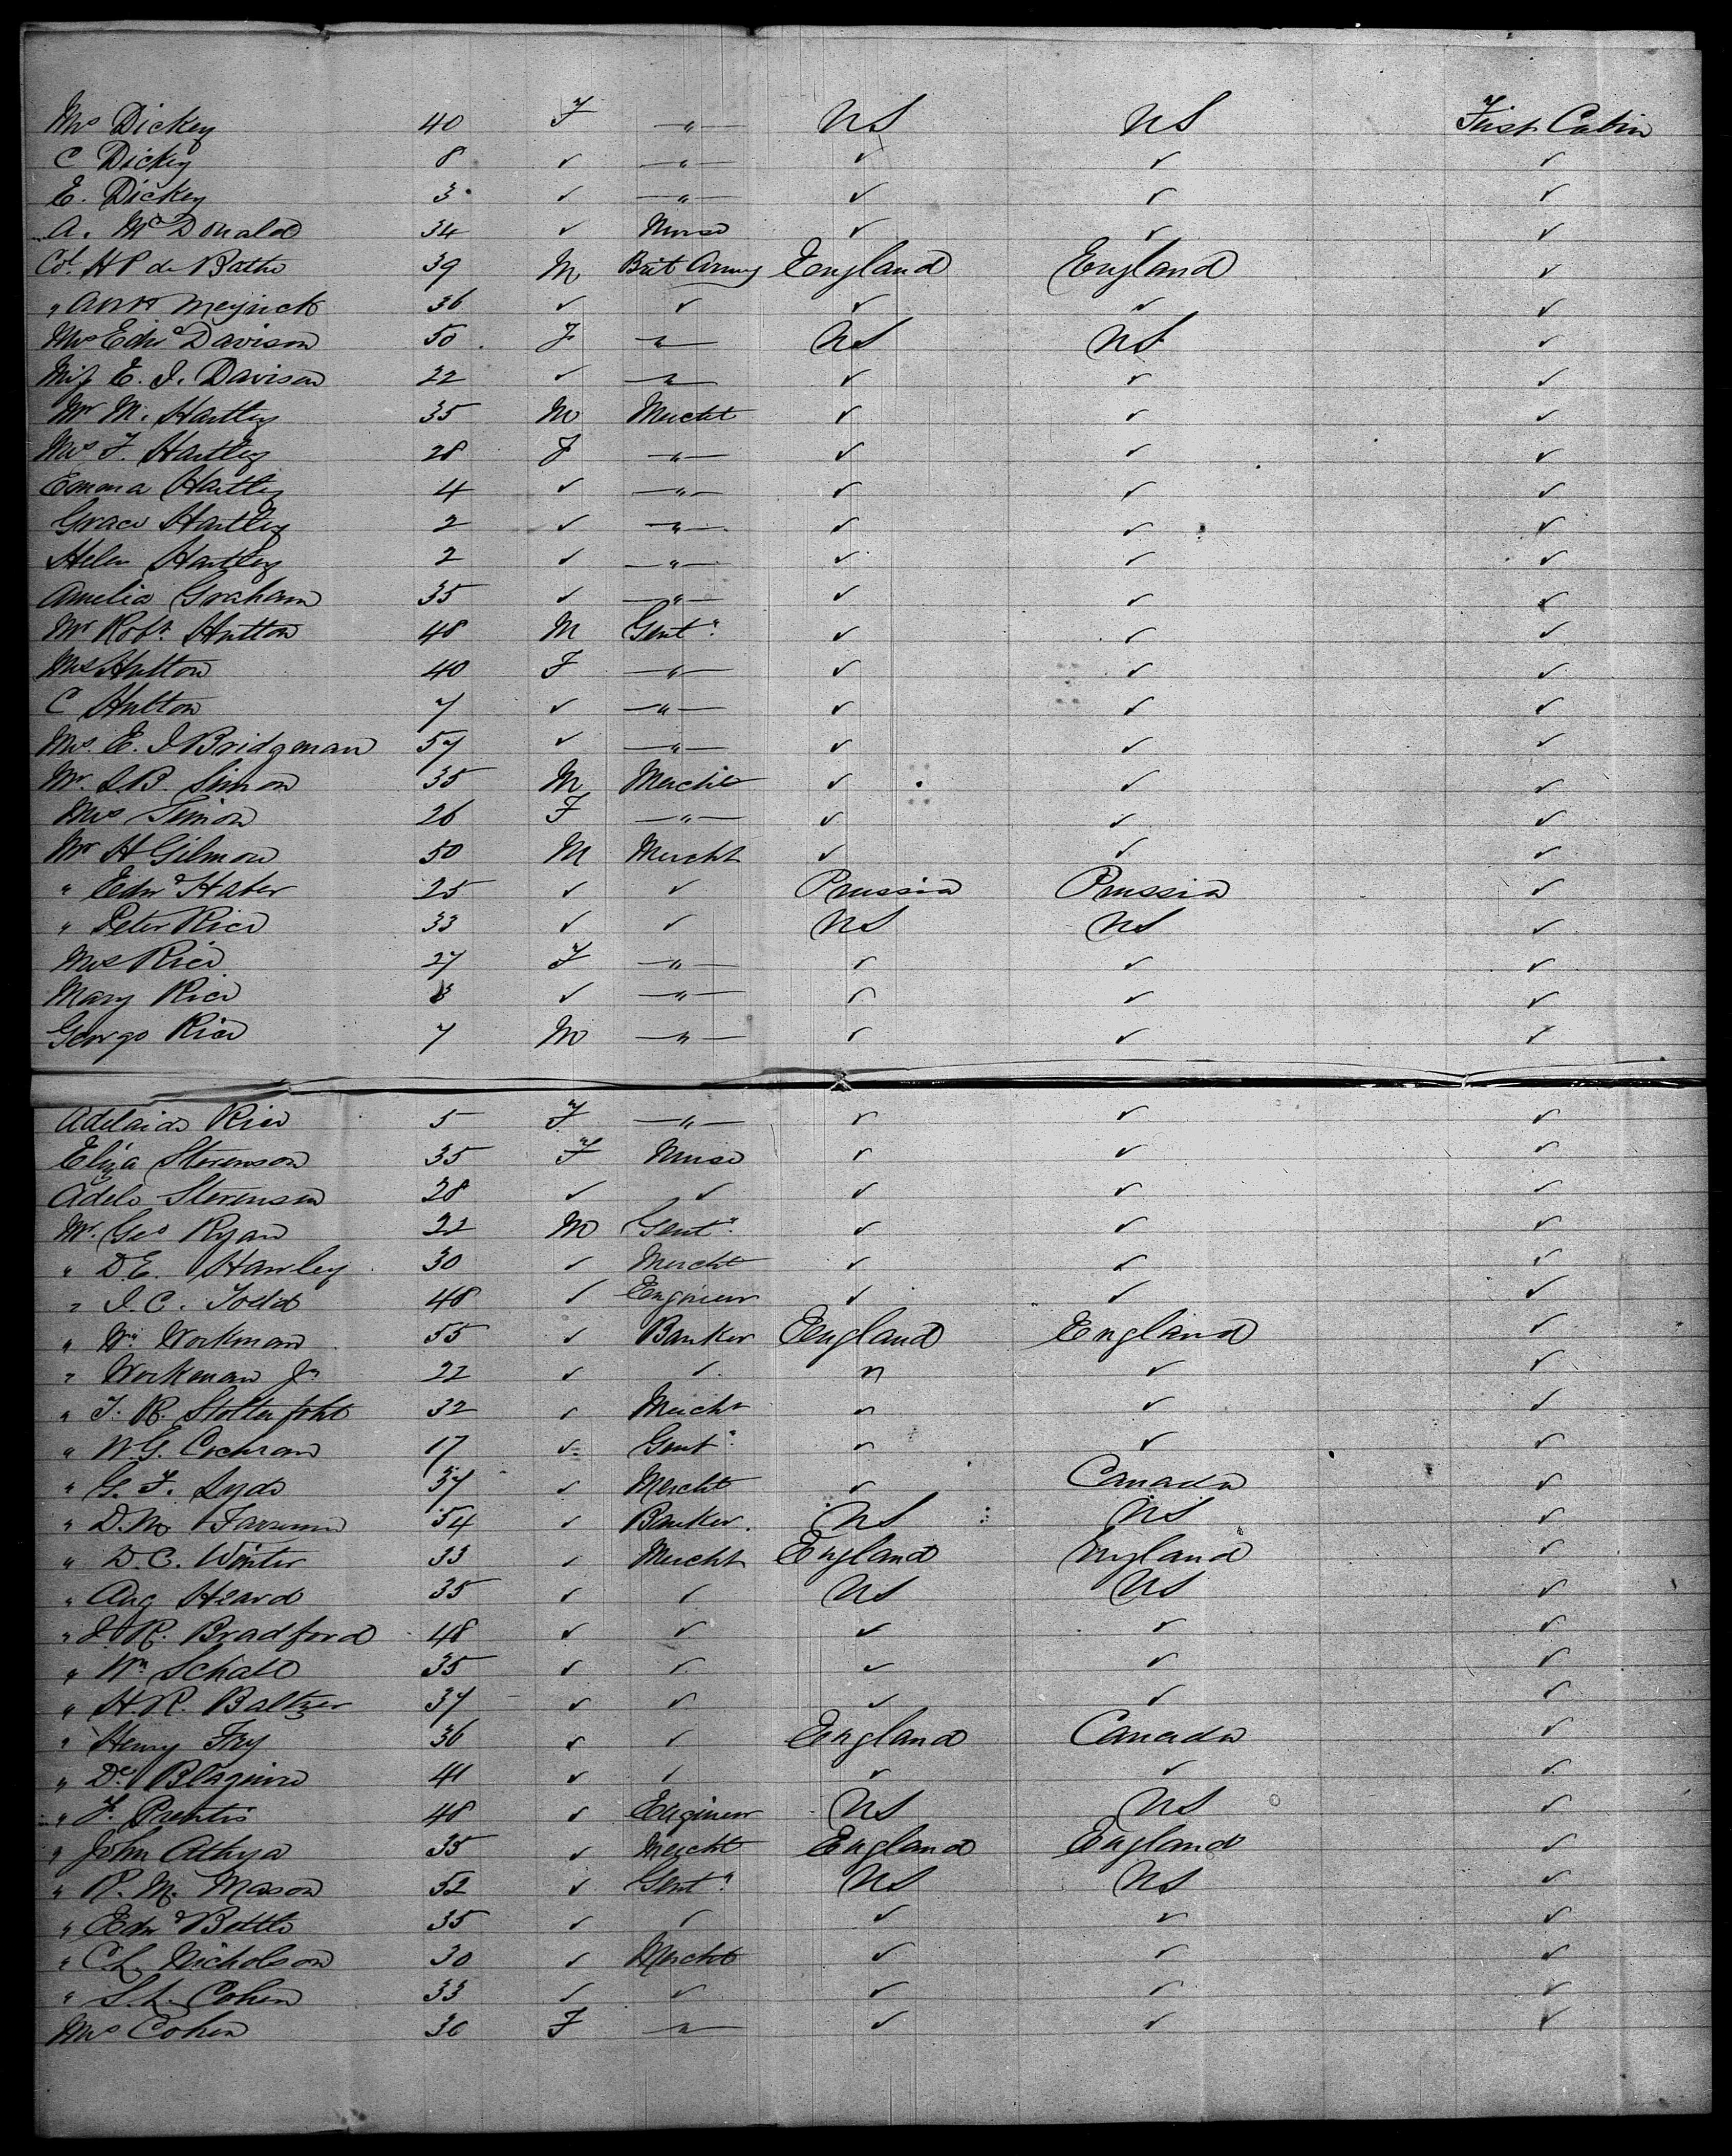 Mrs Dickey 40 F —"— US US First Cabin
C Dickey 8 ✓ —"— ✓ ✓ ✓
E. Dickey 3 ✓ —"— ✓ ✓ ✓
A. McDonald 34 ✓ Nurse ✓ ✓ ✓
Col. H P de Bathe 39 M Brit Army England England ✓
" Meyrick 36 ✓ ✓ ✓ ✓ ✓
Mrs Edwd Davison 50 F —"— US US ✓
Miss E. J. Davison 22 ✓ —"— ✓ ✓ ✓
Mr M. Hartley 35 M Mercht ✓ ✓ ✓
Mrs F. Hartley 28 F —"— ✓ ✓ ✓
Emma Hartley 4 ✓ —"— ✓ ✓ ✓
Grace Hartley 2 ✓ —"— ✓ ✓ ✓
Helen Hartley 2 ✓ —"— ✓ ✓ ✓
Amelia Graham 35 ✓ —"— ✓ ✓ ✓
Mr Robt. Hutton 48 M Gentn. ✓ ✓ ✓
Mrs Hutton 40 F —"— ✓ ✓ ✓
C Hutton 7 ✓ —"— ✓ ✓ ✓
Mrs. E. J Bridgeman 57 ✓ —"— ✓ ✓ ✓
Mr. S B. Simon 35 M Mercht ✓ ✓ ✓
Mrs Simon 26 F —"— ✓ ✓ ✓
Mr H Gilmore 50 M Mercht ✓ ✓ ✓
" Edwd Haber 25 ✓ ✓ Prussia Prussia ✓
" Peter Rice 33 ✓ ✓ US US ✓
Mrs Rice 27 F —"— ✓ ✓ ✓
Mary Rice ✓ —"— ✓ ✓ ✓
George Rice 7 M —"— ✓ ✓ ✓
Adelaide Rice 5 F —"— ✓ ✓ ✓
Eliza Stevenson 35 F Nurse ✓ ✓ ✓
Adele Stevenson 28 ✓ ✓ ✓ ✓ ✓
Mr. Geo Ryan 22 M Gentn. ✓ ✓ ✓
" D.E. Hawley 30 ✓ Mercht ✓ ✓ ✓
" J. C. Todd 48 ✓ Engineer ✓ ✓ ✓
" Wm Workman 55 ✓ Banker England England ✓
" Workman Jr 22 ✓ ✓ " ✓ ✓
" F. R. Stolterfoht 32 ✓ Mercht " ✓ ✓
" W.G. Cochran 17 ✓ Gentn. " ✓ ✓
" G. F. Lyde 37 ✓ Mercht ✓ Canada ✓
" D.M. 54 ✓ Banker. US US ✓
" D. C. Winter 33 ✓ Mercht England England ✓
" Aug Heard 35 ✓ ✓ US US ✓
" J. R. Bradford 48 ✓ ✓ ✓ ✓ ✓
" Wm Schall 35 ✓ ✓ ✓ ✓ ✓
" H.R. Baltzer 37 ✓ ✓ ✓ ✓ ✓
" Henry Fry 36 ✓ ✓ England Canada ✓
" De Blaquiere 41 ✓ ✓ ✓ ✓ ✓
" F. Prentis 48 ✓ Engineer US US ✓
" John Athya 35 ✓ Mercht England England ✓
" R. M. Mason 52 ✓ Gentn. US US ✓
" Edwd Bettle 35 ✓ ✓ ✓ ✓ ✓
" C L Nicholson 30 ✓ Mercht ✓ ✓ ✓
" S. L. Cohen 33 ✓ ✓ ✓ ✓ ✓
Mrs Cohen 30 F —"— ✓ ✓ ✓